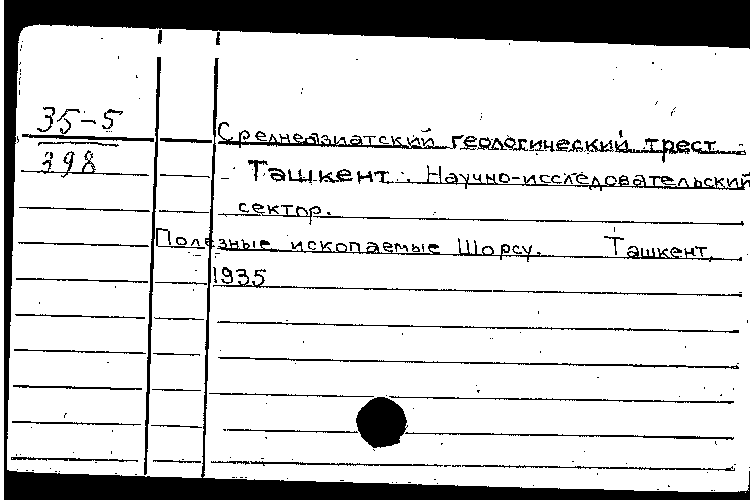 35-5
398
Среднеазиатский геологический трест.
Ташкент. Научно-исследовательский
сектор.
Полезные ископаемые Шорсу. Ташкент,
1935